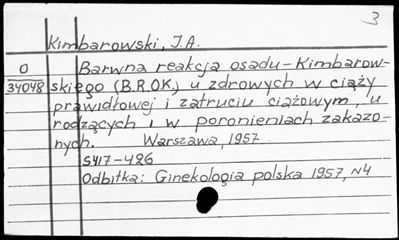 3
Kimbarowski, J.A.
O
34048
Barwna reakcja osadu-Kimbarow-
skiego (B.R.OK.) u zdrowych w ciąży
prawidłowej i zatruciu ciążowym, u
rodzących i w poronieniach zakażo-
nych. Warszawa, 1957
S417-426
Odbitka: Ginekologia polska 1957, N4